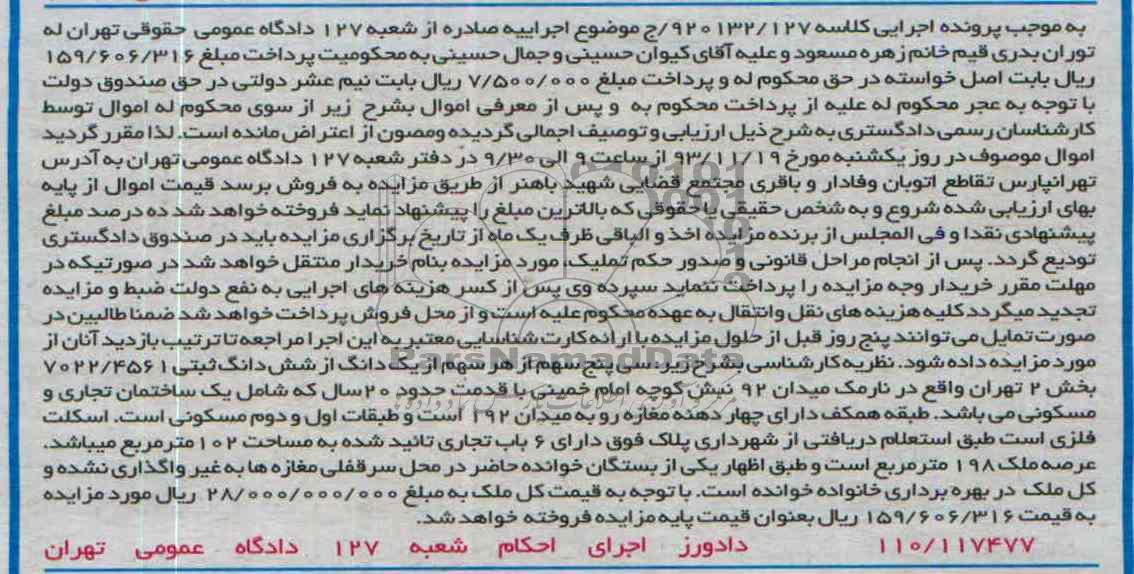 به موجب پرونده اجرایی کلاسه ۹۲۰۱۳۲/۱۲۷/ج موضوع اجراییه صادره از شعبه ۱۲۷ دادگاه عمومی حقوقی تهران له
توران بدری قیم خانم زهره مسعود و علیه آقای کیوان حسینی و جمال حسینی به محکومیت پرداخت مبلغ ۱۵۹/۶۰۶/۳۱۶
ریال بابت اصل خواسته در حق محکوم له و پرداخت مبلغ ۷/۵۰۰/۰۰۰ ریال بابت نیم عشر دولتی در حق صندوق دولت
با توجه به عجر محکوم له علیه از پرداخت محکوم به و پس از معرفی اموال بشرح زیر از سوی محکوم له اموال توسط
کارشناسان رسمی دادگستری به شرح ذیل ارزیابی و توصیف اجمالی گردیده ومصون از اعتراض مانده است. لذا مقرر گردید
اموال موصوف در روز یکشنبه مورخ ۹۳/۱۱/۱۹ از ساعت ۹ الی ۹/۳۰ در دفتر شعبه ۱۲۷ دادگاه عمومی تهران به آدرس
تهرانپارس تقاطع اتوبان وفادار و باقری مجتمع قضایی شهید باهنر از طریق مزایده به فروش برسد قیمت اموال از پایه
بهای ارزیابی شده شروع و به شخص حقیقی یا حقوقی که بالاترین مبلغ را پیشنهاد نماید فروخته خواهد شد ده درصد مبلغ
پیشنهادی نقدا و فی المجلس از برنده مزایده اخذ و الباقی ظرف یک ماه از تاریخ برگزاری مزایده باید در صندوق دادگستری
تودیع گردد. پس از انجام مراحل قانونی و صدور حکم تملیک، مورد مزایده بنام خریدار منتقل خواهد شد در صورتیکه در
مهلت مقرر خریدار وجه مزایده را پرداخت ننماید سپرده وی پس از کسر هزینه های اجرایی به نفع دولت ضبط و مزایده
تجدید میگردد کلیه هزینه های نقل وانتقال به عهده محکوم علیه است و از محل فروش پرداخت خواهد شد ضمنا طالبین در
صورت تمایل می توانند پنج روز قبل از حلول مزایده با ارائه کارت شناسایی معتبر به این اجرا مراجعه تا ترتیب بازدید آنان از
مورد مزایده داده شود. نظریه کارشناسی بشرح زیر: سی پنج سهم از هر سهم از یک دانگ از شش دانگ ثبتی ۷۰۲۲/۴۵۶۱
بخش ۲ تهران واقع در نارمک میدان ۹۲ نبش کوچه امام خمینی با قدمت حدود ۲۰سال که شامل یک ساختمان تجاری و
مسکونی می باشد. طبقه همکف دارای چهار دهنه مغازه رو به میدان ۹۲ است و طبقات اول و دوم مسکونی است. اسکلت
فلزی است طبق استعلام دریافتی از شهرداری پلاک فوق دارای ۶ باب تجاری تائید شده به مساحت ۱۰۲ مترمربع میباشد.
عرصه ملک ۱۹۸ مترمربع است و طبق اظهار یکی از بستگان خوانده حاضر در محل سرقفلی مغازه ها به غیر واگذاری نشده و
کل ملک در بهره برداری خانواده خوانده است. با توجه به قیمت کل ملک به مبلغ ۲۸/۰۰۰/۰۰۰/۰۰۰ ریال مورد مزایده
به قیمت ۱۵۹/۶۰۶/۳۱۶ ریال بعنوان قیمت پایه مزایده فروخته خواهد شد.
۱۱۰/۱۱۷۴۷۷ دادورز اجرای احکام شعبه ۱۲۷ دادگاه عمومی تهران
ParsNamadData